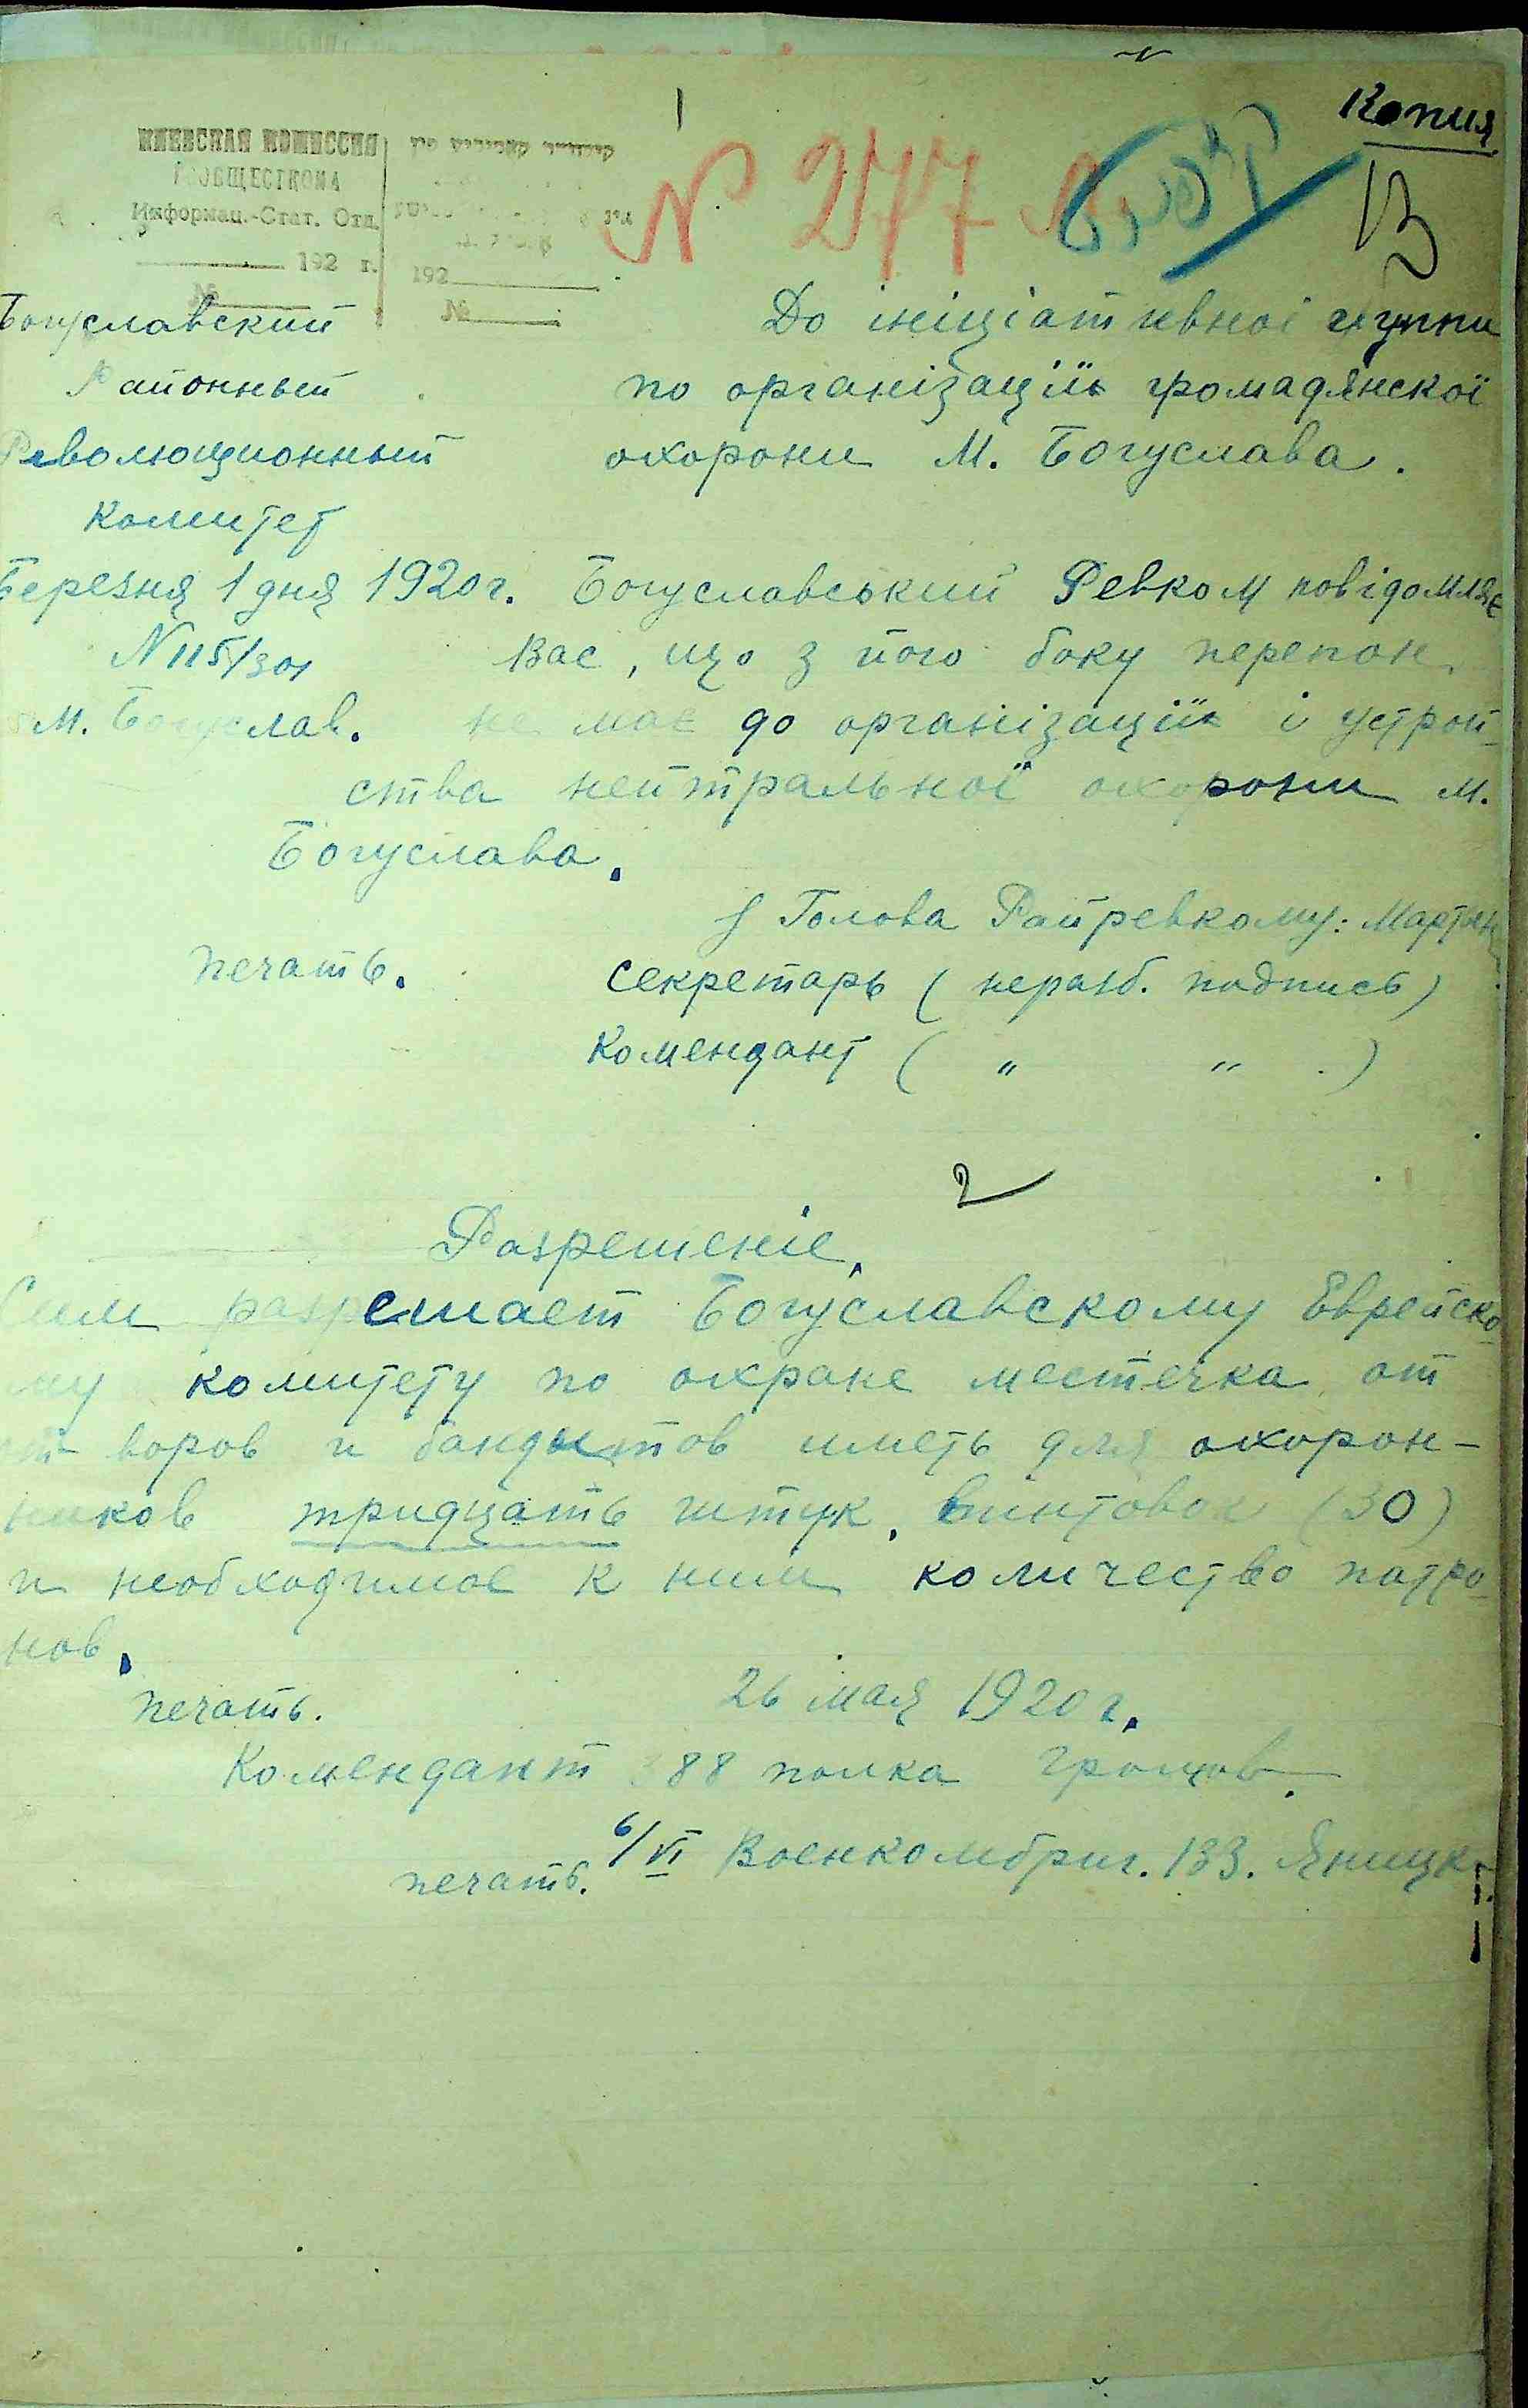 1
Копия
КИЕВСКАЯ КОМИССИЯ
ЕВОБЩЕСТКОМА
Информац.-Стат. Отд.
192 г.
№
192
№
N 277
13
Богуславский
Районный
Революционный
Комитет
Березня 1 дня 1920г.
N 115/301
м. Богуслав.
До ініціативноі групи
по організаціїи громадянскої
охорони М. Богуслава.
Богуславський Ревком повідомляє
Вас, що з його боку перепон
не має до організаціїи і устрой-
ства нейтральної охорони м.
Богуслава.
Голова Райревкому:
печать.
Секретарь (неразб. подпись)
Комендант ( " " )
2
Разрешеніе.
Сим разрешает Богуславскому Еврейско-
му комитету по охране местечка от
от воров и бандытов иметь для охорон-
ников тридцать штук винтовок (30)
и необходимое к ним количество патро-
нов.
печать.
26 мая 1920г.
Комендант 388 полка
6/VI Военкомбриг. 133.
печать.